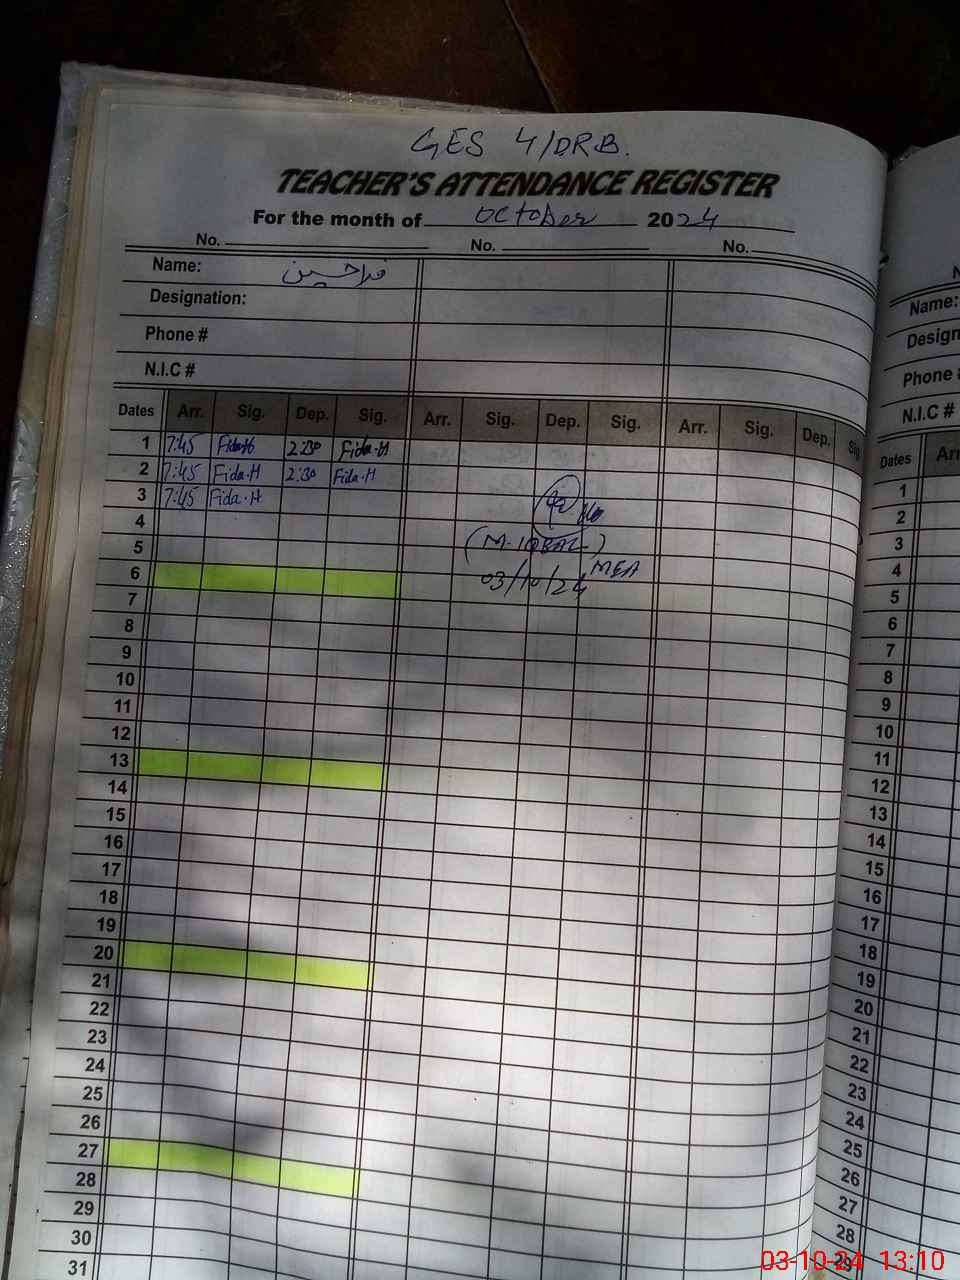 GES 4/DRB.
TEACHER'S ATTENDANCE REGISTER
For the month of October 2024
No. No. No.
Name: فدا حسین
Designation:
Phone #
N.I.C #
Dates Arr. Sig. Dep. Sig. Arr. Sig. Dep. Sig. Arr. Sig. Dep. Sig.
1 7:45 Fida.H 2:30 Fida.H
2 7:45 Fida.H 2:30 Fida.H
3 7:45 Fida.H
4
5 (M.IQBAL)
6 03/10/24 MEA
7
8
9
10
11
12
13
14
15
16
17
18
19
20
21
22
23
24
25
26
27
28
29
30
31
Name:
Design
Phone #
N.I.C #
Dates Arr
1
2
3
4
5
6
7
8
9
10
11
12
13
14
15
16
17
18
19
20
21
22
23
24
25
26
27
28
29
03-10-24 13:10